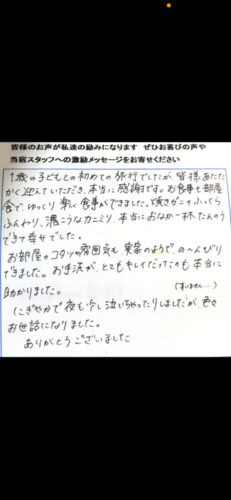 皆様のお声が私達の励みになります ぜひお喜びの声や
当宿スタッフへの激励メッセージをお寄せください
1歳の子どもとの初めての旅行でしたが、皆様あたた
かく迎えていただき、本当に感謝です。お食事も部屋
食で、ゆっくり楽しく食事ができました。焼きガニのふっくら
ふんわり、濃こうなカニミソ、本当におなか一杯たんのう
できて幸せでした。
お部屋のコタツの雰囲気も実家のようで、のんびり
できました。お手洗が、とてもキレイだったのも本当に
助かりました。
(すいません…)
にぎやかで夜も少し泣いちゃったりしましたが、色々
お世話になりました。
ありがとうございました